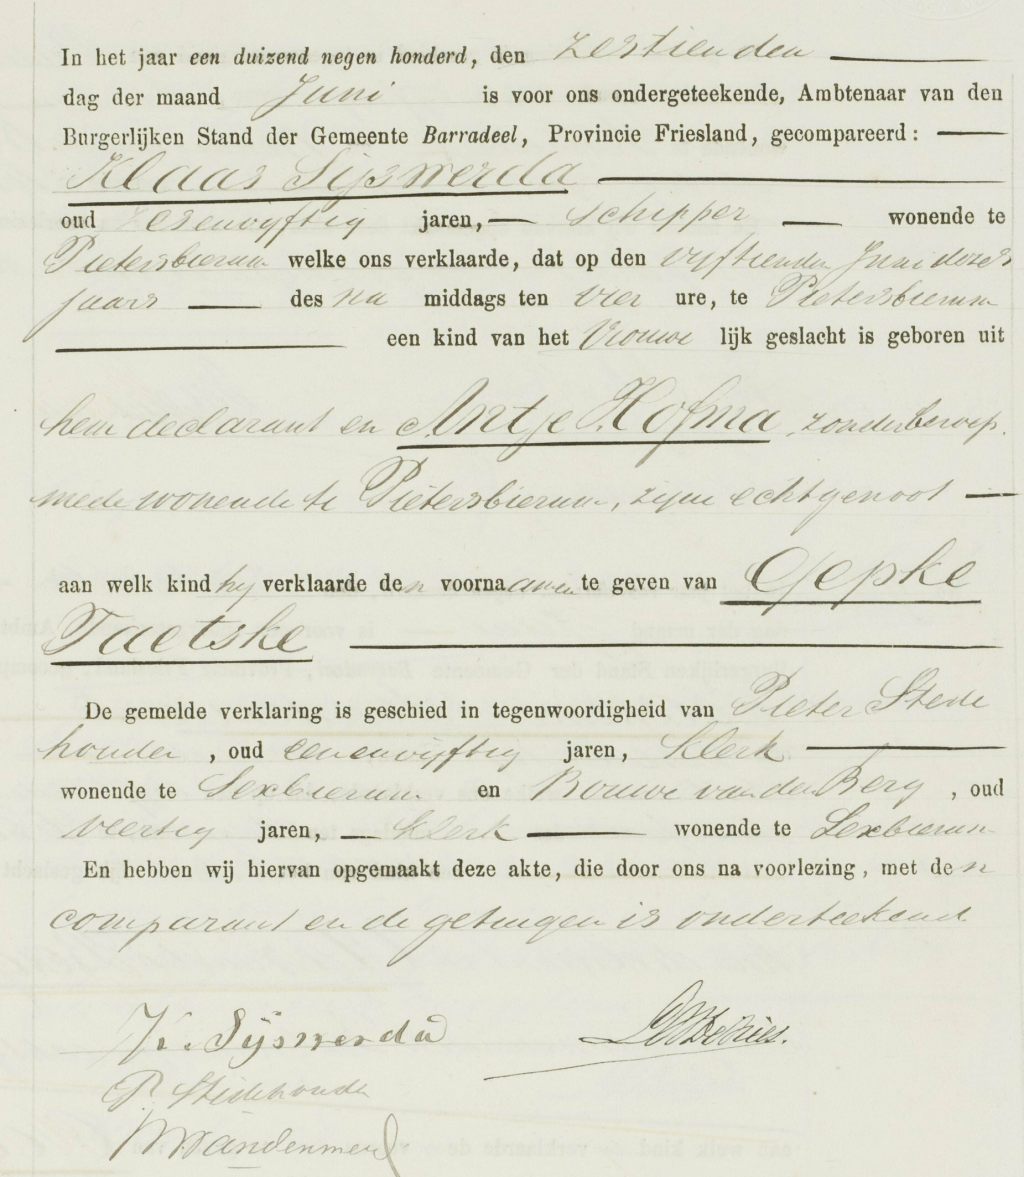 In het jaar een duizend negen honderd, den zestienden
dag der maand Juni is voor ons ondergeteekende, Ambtenaar van den
Burgerlijken Stand der Gemeente Barradeel, Provincie Friesland, gecompareerd:
Klaas Sijswerda
oud zesenvyftig jaren, schipper wonende te
Pietersbierum welke ons verklaarde, dat op den vyftienden Juni dezes
jaars des na middags ten vier ure, te Pietersbierum
een kind van het Vrouwe lijk geslacht is geboren uit
hem declarant en Antje Hofma, zonder beroep,
mede wonende te Pietersbierum, zyne echtgenoot
aan welk kind hy verklaarde den voornaamen te geven van Gepke
Taetske
De gemelde verklaring is geschied in tegenwoordigheid van Pieter Stede
houder, oud eenenvyftig jaren, klerk
wonende te Sexbierum en Bouwe van den Berg, oud
veertig jaren, klerk wonende te Sexbierum
En hebben wij hiervan opgemaakt deze akte, die door ons na voorlezing, met den
comparant en de getuigen is onderteekend
K. Sijswerda
P. Stedehouder